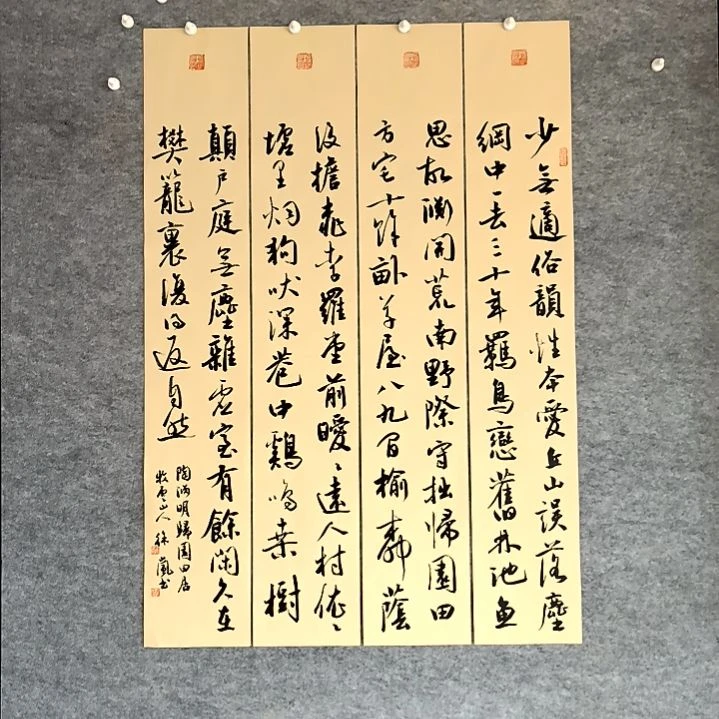 少無適俗韻性本愛丘山誤落塵
網中一去三十年羈鳥戀舊林池魚
思故淵開荒南野際守拙歸園田
方宅十餘畝草屋八九間榆柳蔭
後檐桃李羅堂前曖〻遠人村依〻
墟里烟狗吠深巷中鷄鳴桑樹
顛户庭無塵雜虛室有餘閑久在
樊籠裏復得返自然
陶淵明歸園田居
山人徐嵐書